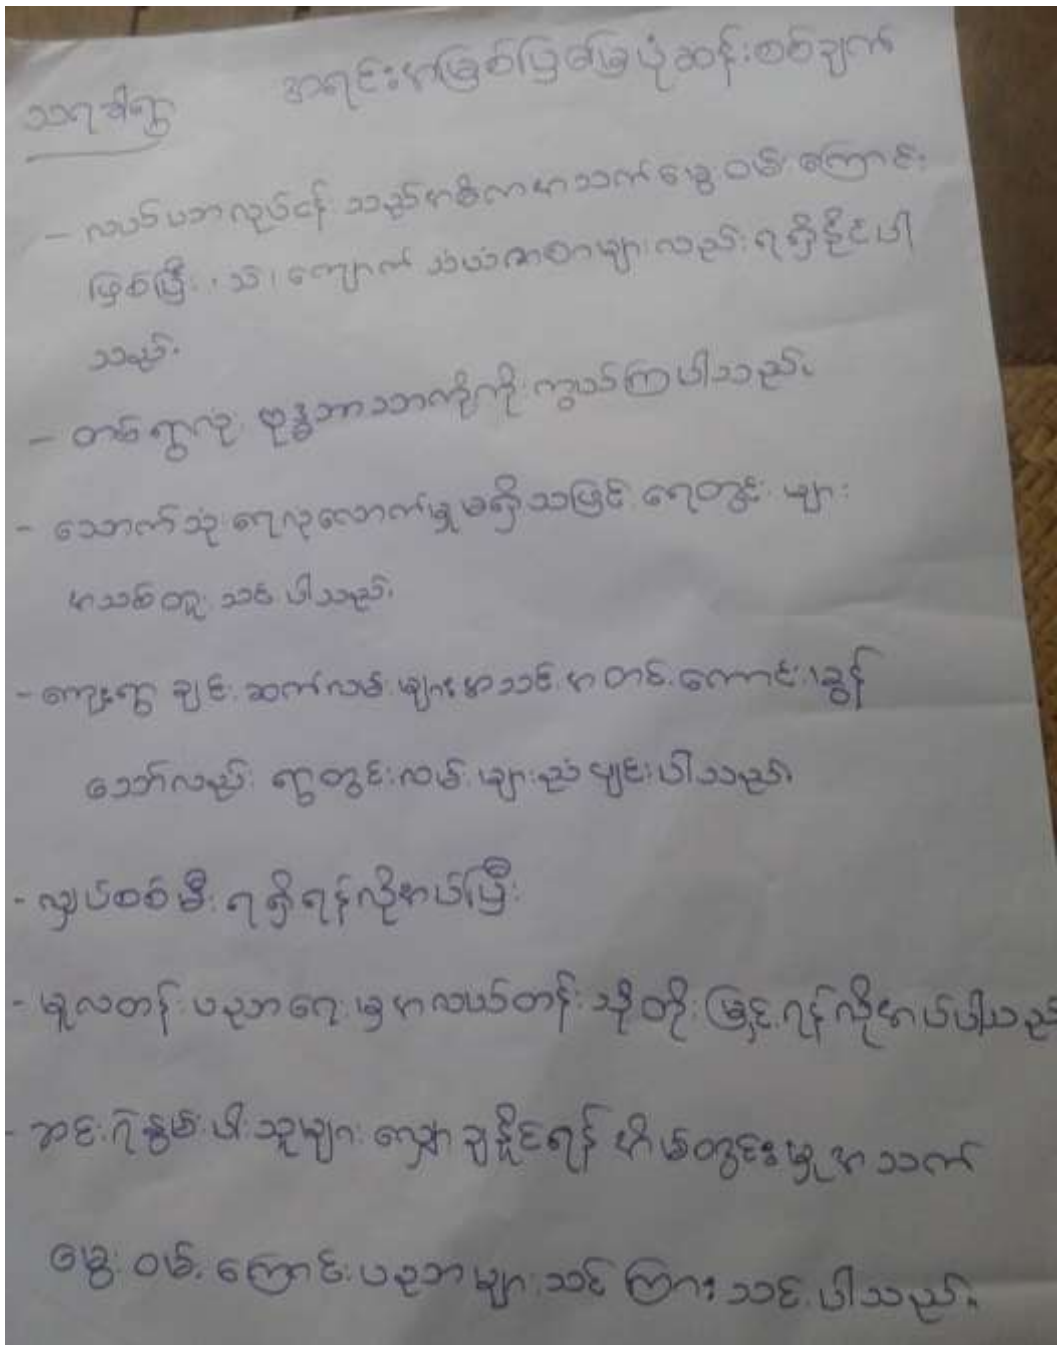 အရင်းအမြစ်ပြမြေပုံဆန်းစစ်ချက်
သရက်ရွာ
- လယ်ယာလုပ်ငန်းသည်အဓိကအသက်မွေးဝမ်းကြောင်း
ဖြစ်ပြီး၊ သဲ၊ ကျောက် သယံဇာတများလည်းရရှိနိုင်ပါ
သည်။
- တစ်ရွာလုံး ဗုဒ္ဓဘာသာကိုကိုးကွယ်ကြပါသည်။
- သောက်သုံးရေလုံလောက်မှုမရှိသဖြင့် ရေတွင်းများ
အသစ်တူးသင့်ပါသည်။
- ကျေးရွာချင်းဆက်လမ်းများအသင့်အတင့်ကောင်းမွန်
သော်လည်း ရွာတွင်းလမ်းများညံ့ဖျင်းပါသည်။
- လျှပ်စစ်မီးရရှိရန်လိုအပ်ပြီး
- မူလတန်းပညာရေးမှအလယ်တန်းသို့တိုးမြှင့်ရန်လိုအပ်ပါသည်
- ဆင်းရဲနွမ်းပါးသူများလျှော့ချနိုင်ရန် အိမ်တွင်းမှုအသက်
မွေးဝမ်းကြောင်းပညာများသင်ကြားသင့်ပါသည်။